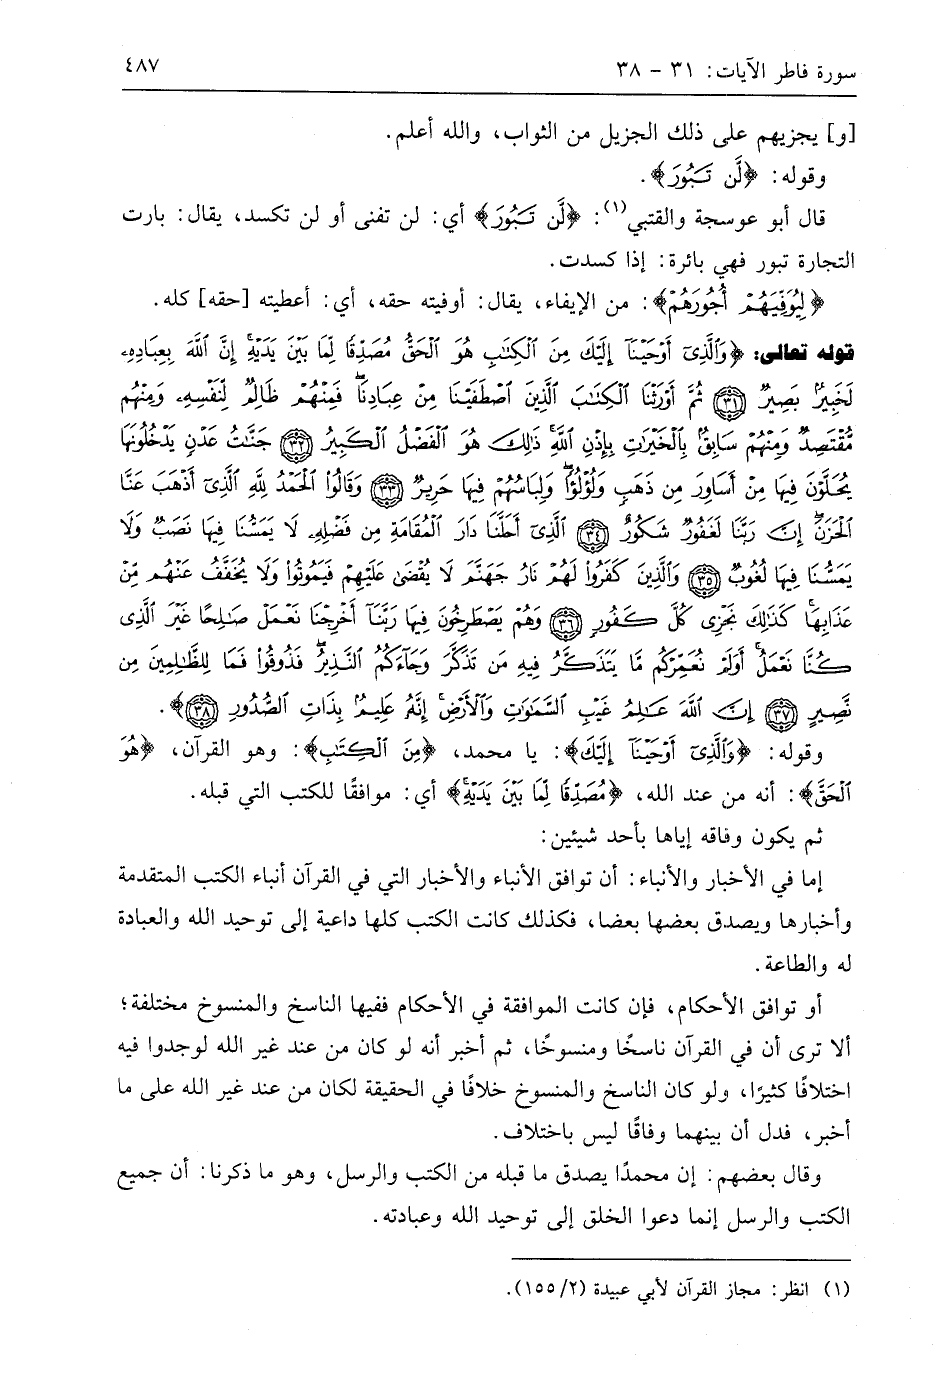 سورة فاطر الآيات: ٣١ - ٣٨ ٤٨٧
[و] يجزيهم على ذلك الجزيل من الثواب، والله أعلم.
وقوله: ﴿لَّن تَبُورَ﴾.
قال أبو عوسجة والقتبي(١): ﴿لَّن تَبُورَ﴾ أي: لن تفنى أو لن تكسد، يقال: بارت
التجارة تبور فهي بائرة: إذا كسدت.
﴿لِيُوَفِّيَهُمْ أُجُورَهُمْ﴾: من الإيفاء، يقال: أوفيته حقه، أي: أعطيته [حقه] كله.
قوله تعالى: ﴿وَٱلَّذِىٓ أَوْحَيْنَآ إِلَيْكَ مِنَ ٱلْكِتَٰبِ هُوَ ٱلْحَقُّ مُصَدِّقًا لِّمَا بَيْنَ يَدَيْهِ إِنَّ ٱللَّهَ بِعِبَادِهِۦ
لَخَبِيرٌۢ بَصِيرٌ ﴿٣١﴾ ثُمَّ أَوْرَثْنَا ٱلْكِتَٰبَ ٱلَّذِينَ ٱصْطَفَيْنَا مِنْ عِبَادِنَا فَمِنْهُمْ ظَالِمٌ لِّنَفْسِهِۦ وَمِنْهُم
مُّقْتَصِدٌ وَمِنْهُمْ سَابِقٌۢ بِٱلْخَيْرَٰتِ بِإِذْنِ ٱللَّهِ ذَٰلِكَ هُوَ ٱلْفَضْلُ ٱلْكَبِيرُ ﴿٣٢﴾ جَنَّٰتُ عَدْنٍ يَدْخُلُونَهَا
يُحَلَّوْنَ فِيهَا مِنْ أَسَاوِرَ مِن ذَهَبٍ وَلُؤْلُؤًا وَلِبَاسُهُمْ فِيهَا حَرِيرٌ ﴿٣٣﴾ وَقَالُوا۟ ٱلْحَمْدُ لِلَّهِ ٱلَّذِىٓ أَذْهَبَ عَنَّا
ٱلْحَزَنَ إِنَّ رَبَّنَا لَغَفُورٌ شَكُورٌ ﴿٣٤﴾ ٱلَّذِىٓ أَحَلَّنَا دَارَ ٱلْمُقَامَةِ مِن فَضْلِهِۦ لَا يَمَسُّنَا فِيهَا نَصَبٌ وَلَا
يَمَسُّنَا فِيهَا لُغُوبٌ ﴿٣٥﴾ وَٱلَّذِينَ كَفَرُوا۟ لَهُمْ نَارُ جَهَنَّمَ لَا يُقْضَىٰ عَلَيْهِمْ فَيَمُوتُوا۟ وَلَا يُخَفَّفُ عَنْهُم مِّنْ
عَذَابِهَا كَذَٰلِكَ نَجْزِى كُلَّ كَفُورٍ ﴿٣٦﴾ وَهُمْ يَصْطَرِخُونَ فِيهَا رَبَّنَآ أَخْرِجْنَا نَعْمَلْ صَٰلِحًا غَيْرَ ٱلَّذِى
كُنَّا نَعْمَلُ أَوَلَمْ نُعَمِّرْكُم مَّا يَتَذَكَّرُ فِيهِ مَن تَذَكَّرَ وَجَآءَكُمُ ٱلنَّذِيرُ فَذُوقُوا۟ فَمَا لِلظَّٰلِمِينَ مِن
نَّصِيرٍ ﴿٣٧﴾ إِنَّ ٱللَّهَ عَٰلِمُ غَيْبِ ٱلسَّمَٰوَٰتِ وَٱلْأَرْضِ إِنَّهُۥ عَلِيمٌۢ بِذَاتِ ٱلصُّدُورِ ﴿٣٨﴾﴾.
وقوله: ﴿وَٱلَّذِىٓ أَوْحَيْنَآ إِلَيْكَ﴾: يا محمد، ﴿مِنَ ٱلْكِتَٰبِ﴾: وهو القرآن، ﴿هُوَ
ٱلْحَقُّ﴾: أنه من عند الله، ﴿مُصَدِّقًا لِّمَا بَيْنَ يَدَيْهِ﴾ أي: موافقًا للكتب التي قبله.
ثم يكون وفاقه إياها بأحد شيئين:
إما في الأخبار والأنباء: أن توافق الأنباء والأخبار التي في القرآن أنباء الكتب المتقدمة
وأخبارها ويصدق بعضها بعضا، فكذلك كانت الكتب كلها داعية إلى توحيد الله والعبادة
له والطاعة.
أو توافق الأحكام، فإن كانت الموافقة في الأحكام ففيها الناسخ والمنسوخ مختلفة؛
ألا ترى أن في القرآن ناسخًا ومنسوخًا، ثم أخبر أنه لو كان من عند غير الله لوجدوا فيه
اختلافًا كثيرًا، ولو كان الناسخ والمنسوخ خلافًا في الحقيقة لكان من عند غير الله على ما
أخبر، فدل أن بينهما وفاقًا ليس باختلاف.
وقال بعضهم: إن محمدًا يصدق ما قبله من الكتب والرسل، وهو ما ذكرنا: أن جميع
الكتب والرسل إنما دعوا الخلق إلى توحيد الله وعبادته.
(١) انظر: مجاز القرآن لأبي عبيدة (٢/١٥٥).